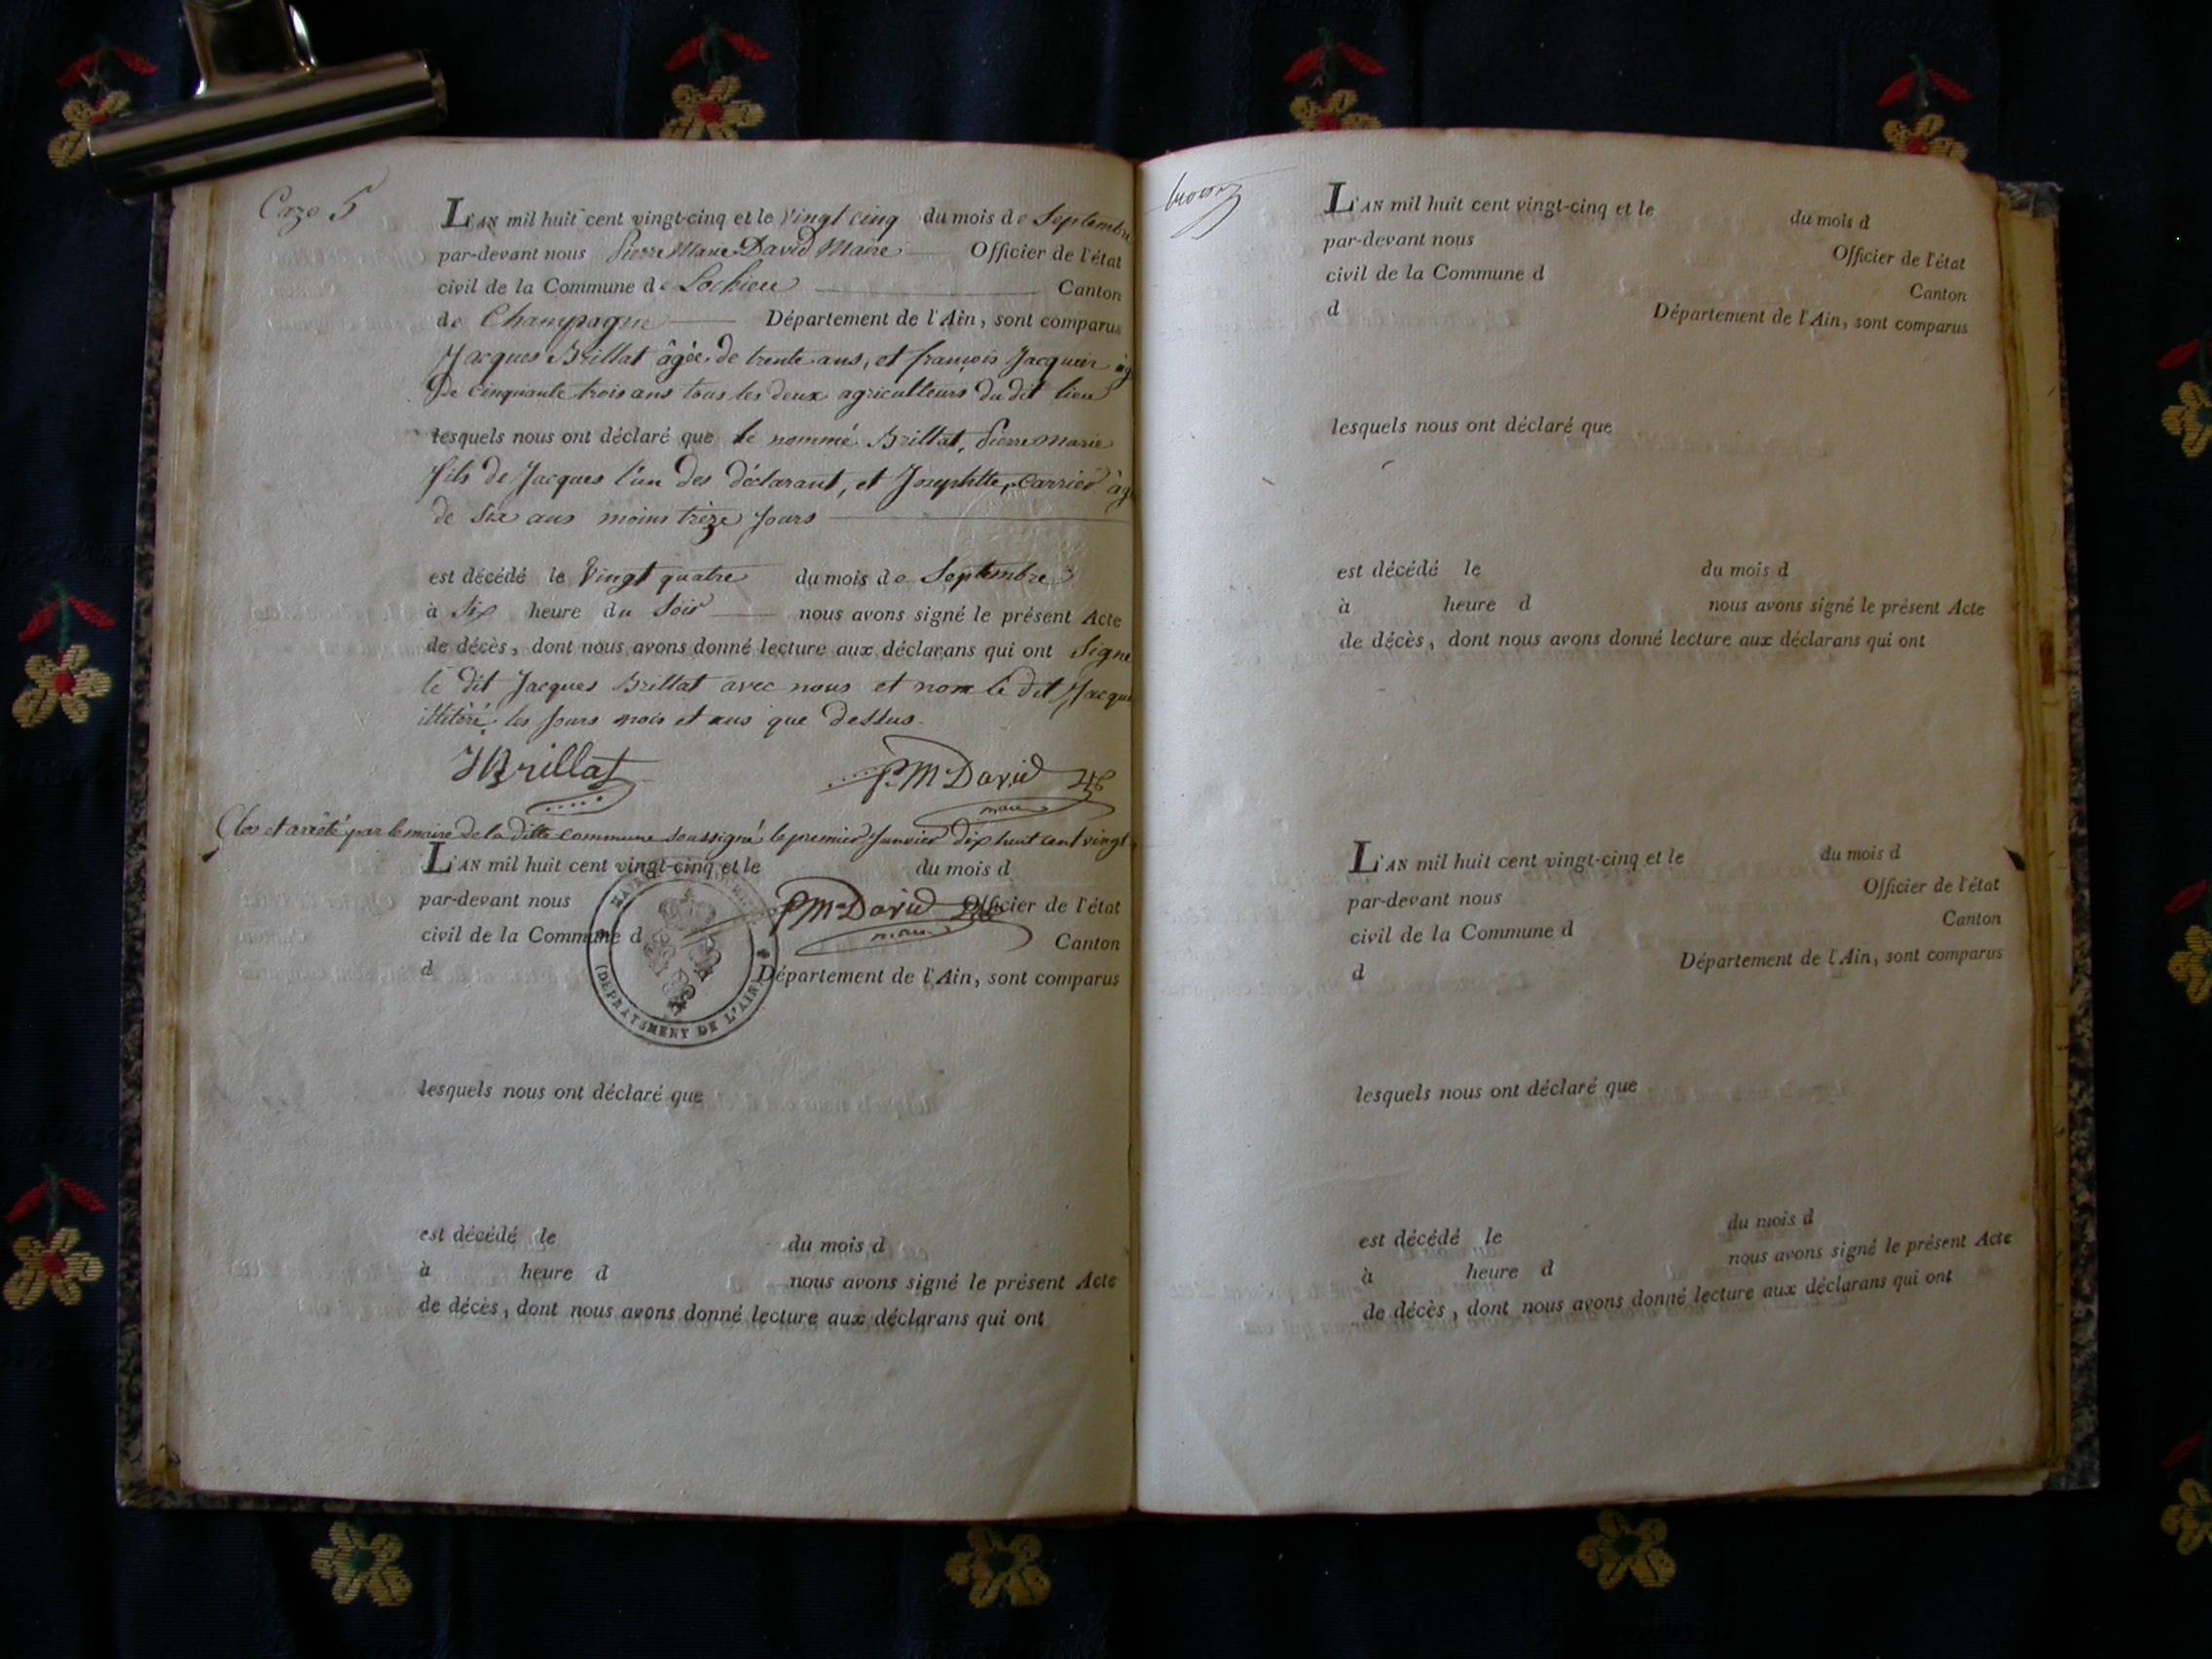 Caze 5
L'AN mil huit cent vingt-cinq et le vingt cinq du mois de Septembre
par-devant nous Pierre Marie David Maire Officier de l'état
civil de la Commune de Lochieu Canton
de Champagne Département de l'Ain, sont comparus
Jacques Brillat âgée de trente ans, et françois Jacquier
De cinquante trois ans tous les deux agriculteurs du dit lieu
lesquels nous ont déclaré que le nommé Brillat, Pierre Marie
fils de Jacques l'un des déclarant, et Josephtte Carrier
de Six ans moins trèze Jours
est décédé le vingt quatre du mois de Septembre
à Six heure du Soir nous avons signé le présent Acte
de décès, dont nous avons donné lecture aux déclarans qui ont Signé
le dit Jacques Brillat avec nous et non le dit
illitéré les Jours mois et ans que dessus.
JBrillat
PM David
maire
Clos et arrêté par le maire de la ditte commune soussigné le premier Janvier dix huit cent vingt
L'AN mil huit cent vingt-cinq et le du mois d
par-devant nous PM David Officier de l'état
maire
civil de la Commune d Canton
d Département de l'Ain, sont comparus
(DEPRATEMENT DE L'AIN)
lesquels nous ont déclaré que
est décédé le du mois d
à heure d nous avons signé le présent Acte
de décès, dont nous avons donné lecture aux déclarans qui ont
L'AN mil huit cent vingt-cinq et le du mois d
par-devant nous Officier de l'état
civil de la Commune d Canton
d Département de l'Ain, sont comparus
lesquels nous ont déclaré que
est décédé le du mois d
à heure d nous avons signé le présent Acte
de décès, dont nous avons donné lecture aux déclarans qui ont
L'AN mil huit cent vingt-cinq et le du mois d
par-devant nous Officier de l'état
civil de la Commune d Canton
d Département de l'Ain, sont comparus
lesquels nous ont déclaré que
est décédé le du mois d
à heure d nous avons signé le présent Acte
de décès, dont nous avons donné lecture aux déclarans qui ont